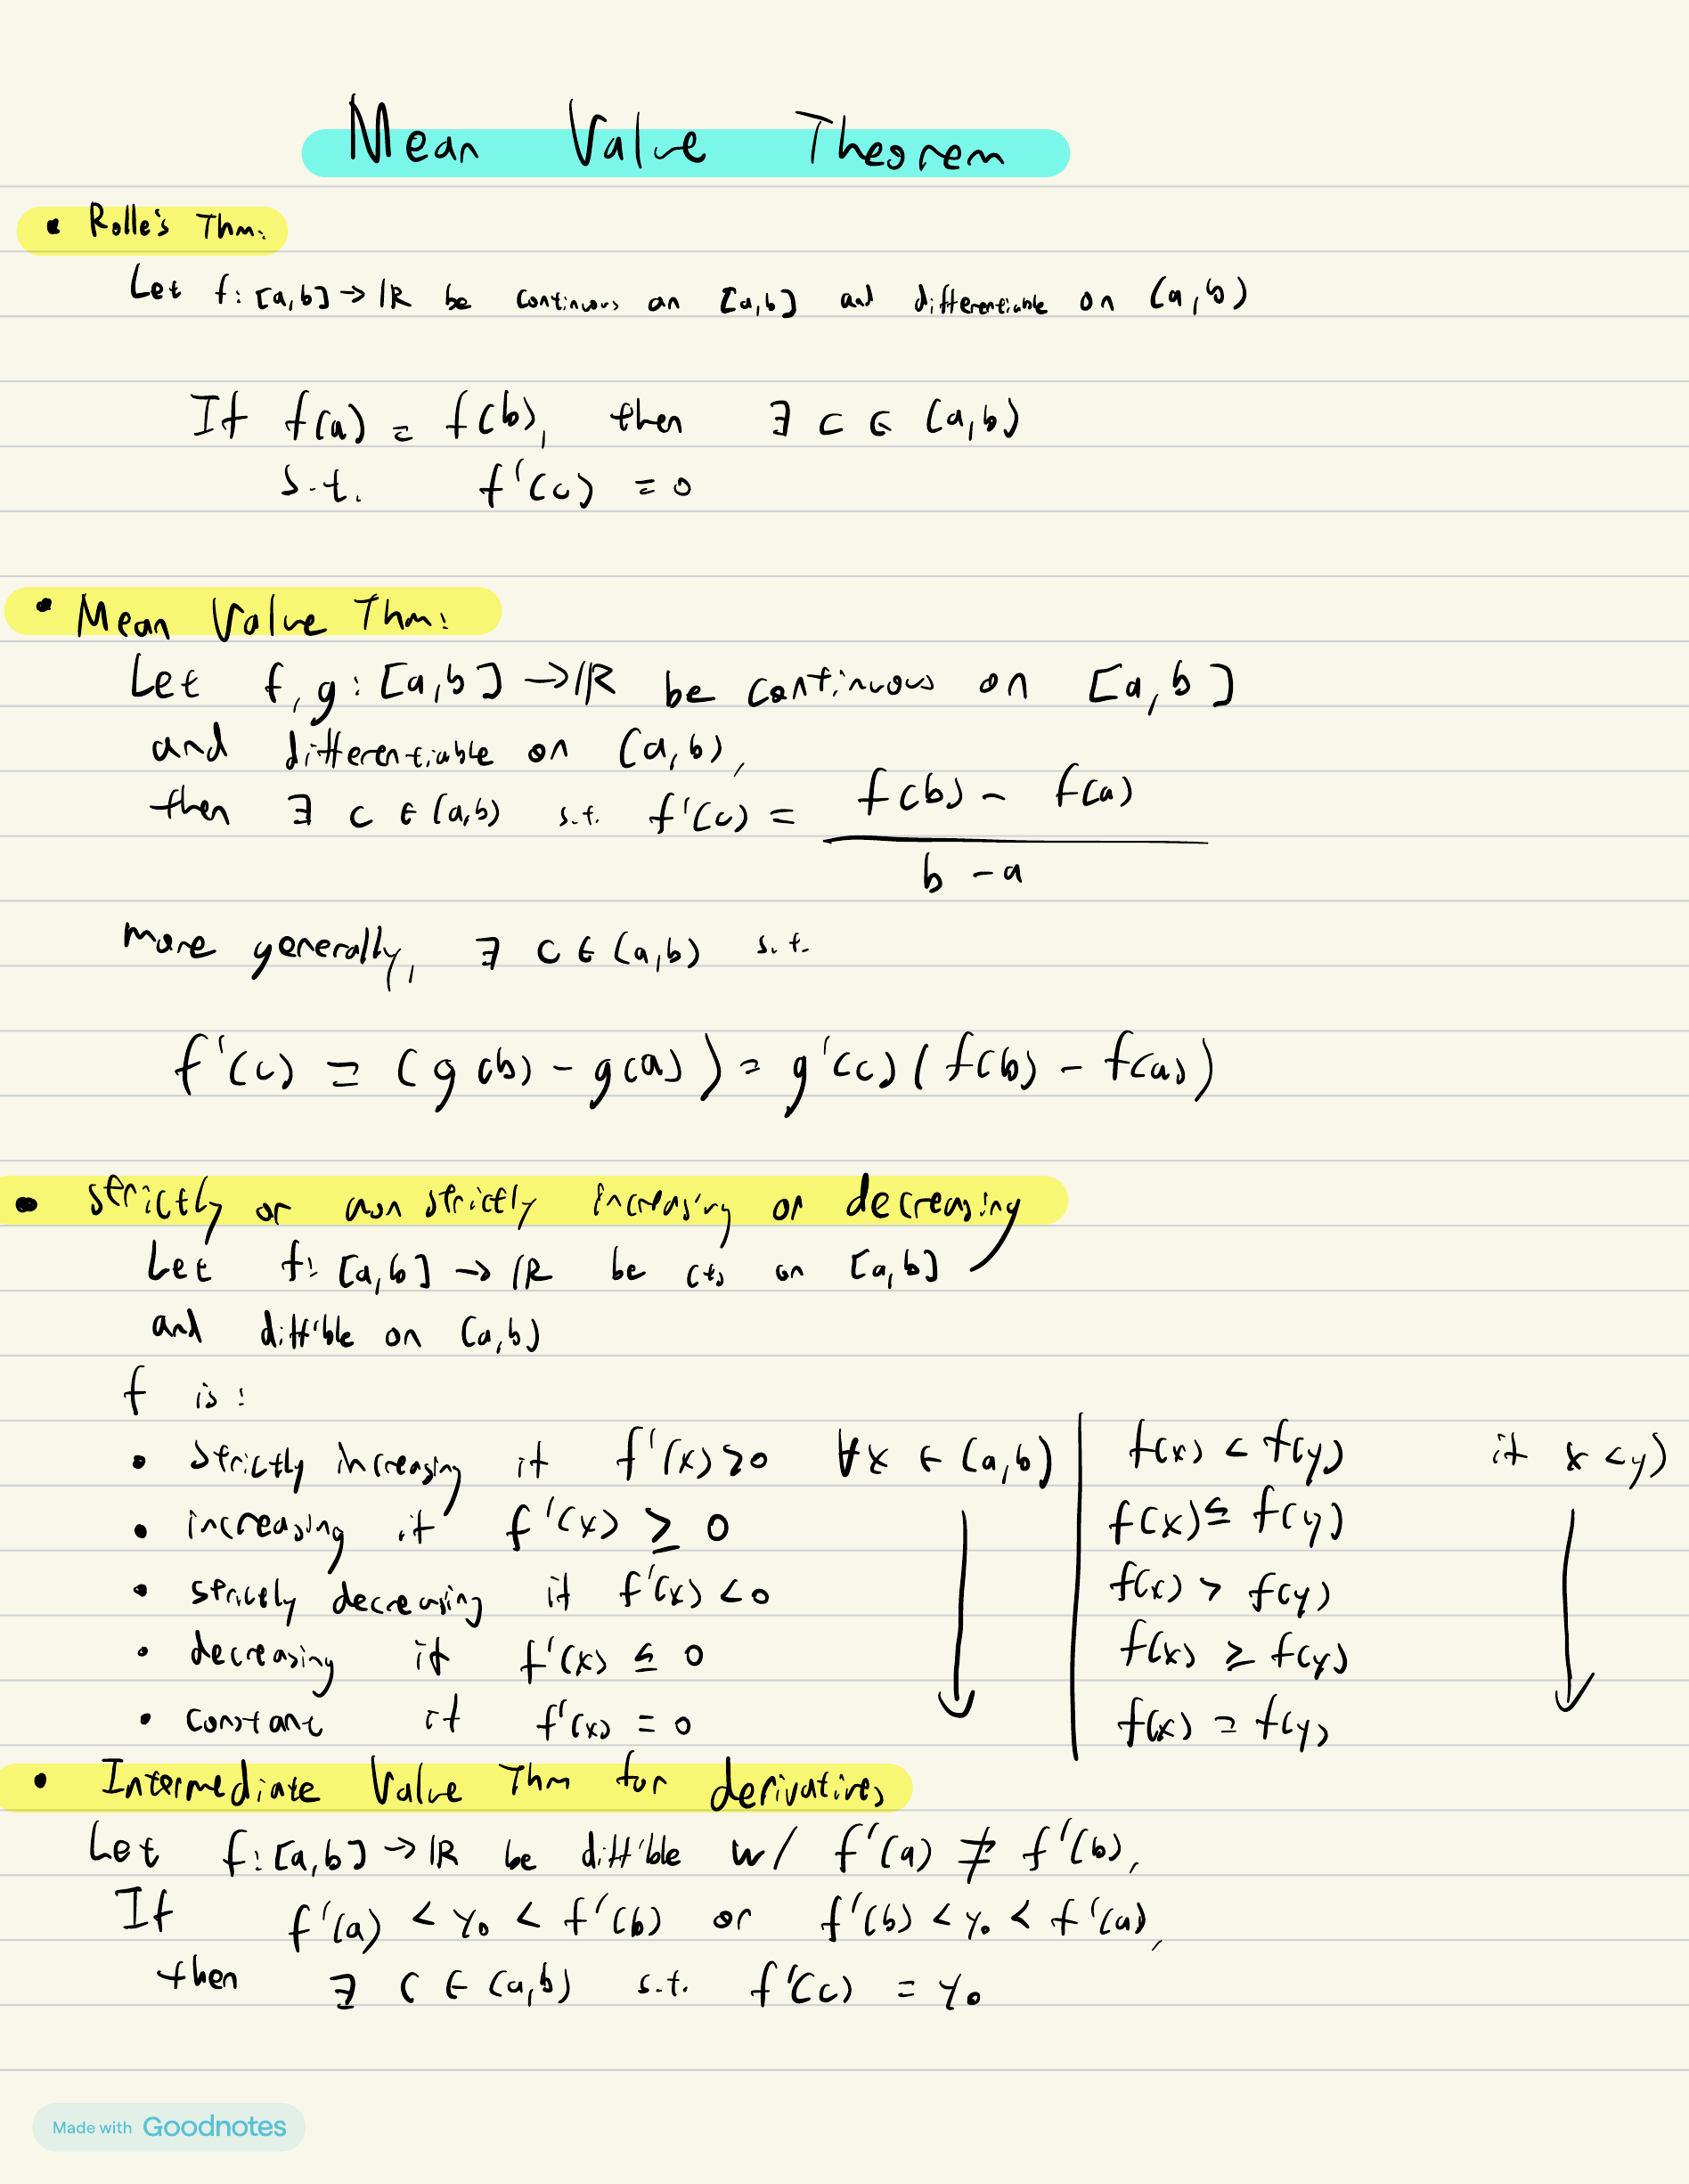 Mean Value Theorem
• Rolle's Thm:
Let f: [a,b] → ℝ be continuous on [a,b] and differentiable on (a,b)
If f(a) = f(b), then ∃ c ∈ (a,b)
s.t. f'(c) = 0
• Mean Value Thm:
Let f, g: [a,b] → ℝ be continuous on [a,b]
and differentiable on (a,b),
then ∃ c ∈ (a,b) s.t. f'(c) = (f(b) - f(a)) / (b - a)
more generally, ∃ c ∈ (a,b) s.t.
f'(c) = (g(b) - g(a)) = g'(c) (f(b) - f(a))
• strictly or non strictly increasing or decreasing
Let f: [a,b] → ℝ be cts on [a,b]
and diff'ble on (a,b)
f is:
• strictly increasing if f'(x) > 0 ∀x ∈ (a,b) | f(x) < f(y) if x < y)
• increasing if f'(x) ≥ 0 ↓ | f(x) ≤ f(y) ↓
• strictly decreasing if f'(x) < 0 | f(x) > f(y)
• decreasing if f'(x) ≤ 0 | f(x) ≥ f(y)
• constant if f'(x) = 0 | f(x) = f(y)
• Intermediate Value Thm for derivatives
Let f: [a,b] → ℝ be diff'ble w/ f'(a) ≠ f'(b),
If f'(a) < y₀ < f'(b) or f'(b) < y₀ < f'(a),
then ∃ c ∈ (a,b) s.t. f'(c) = y₀
Made with Goodnotes